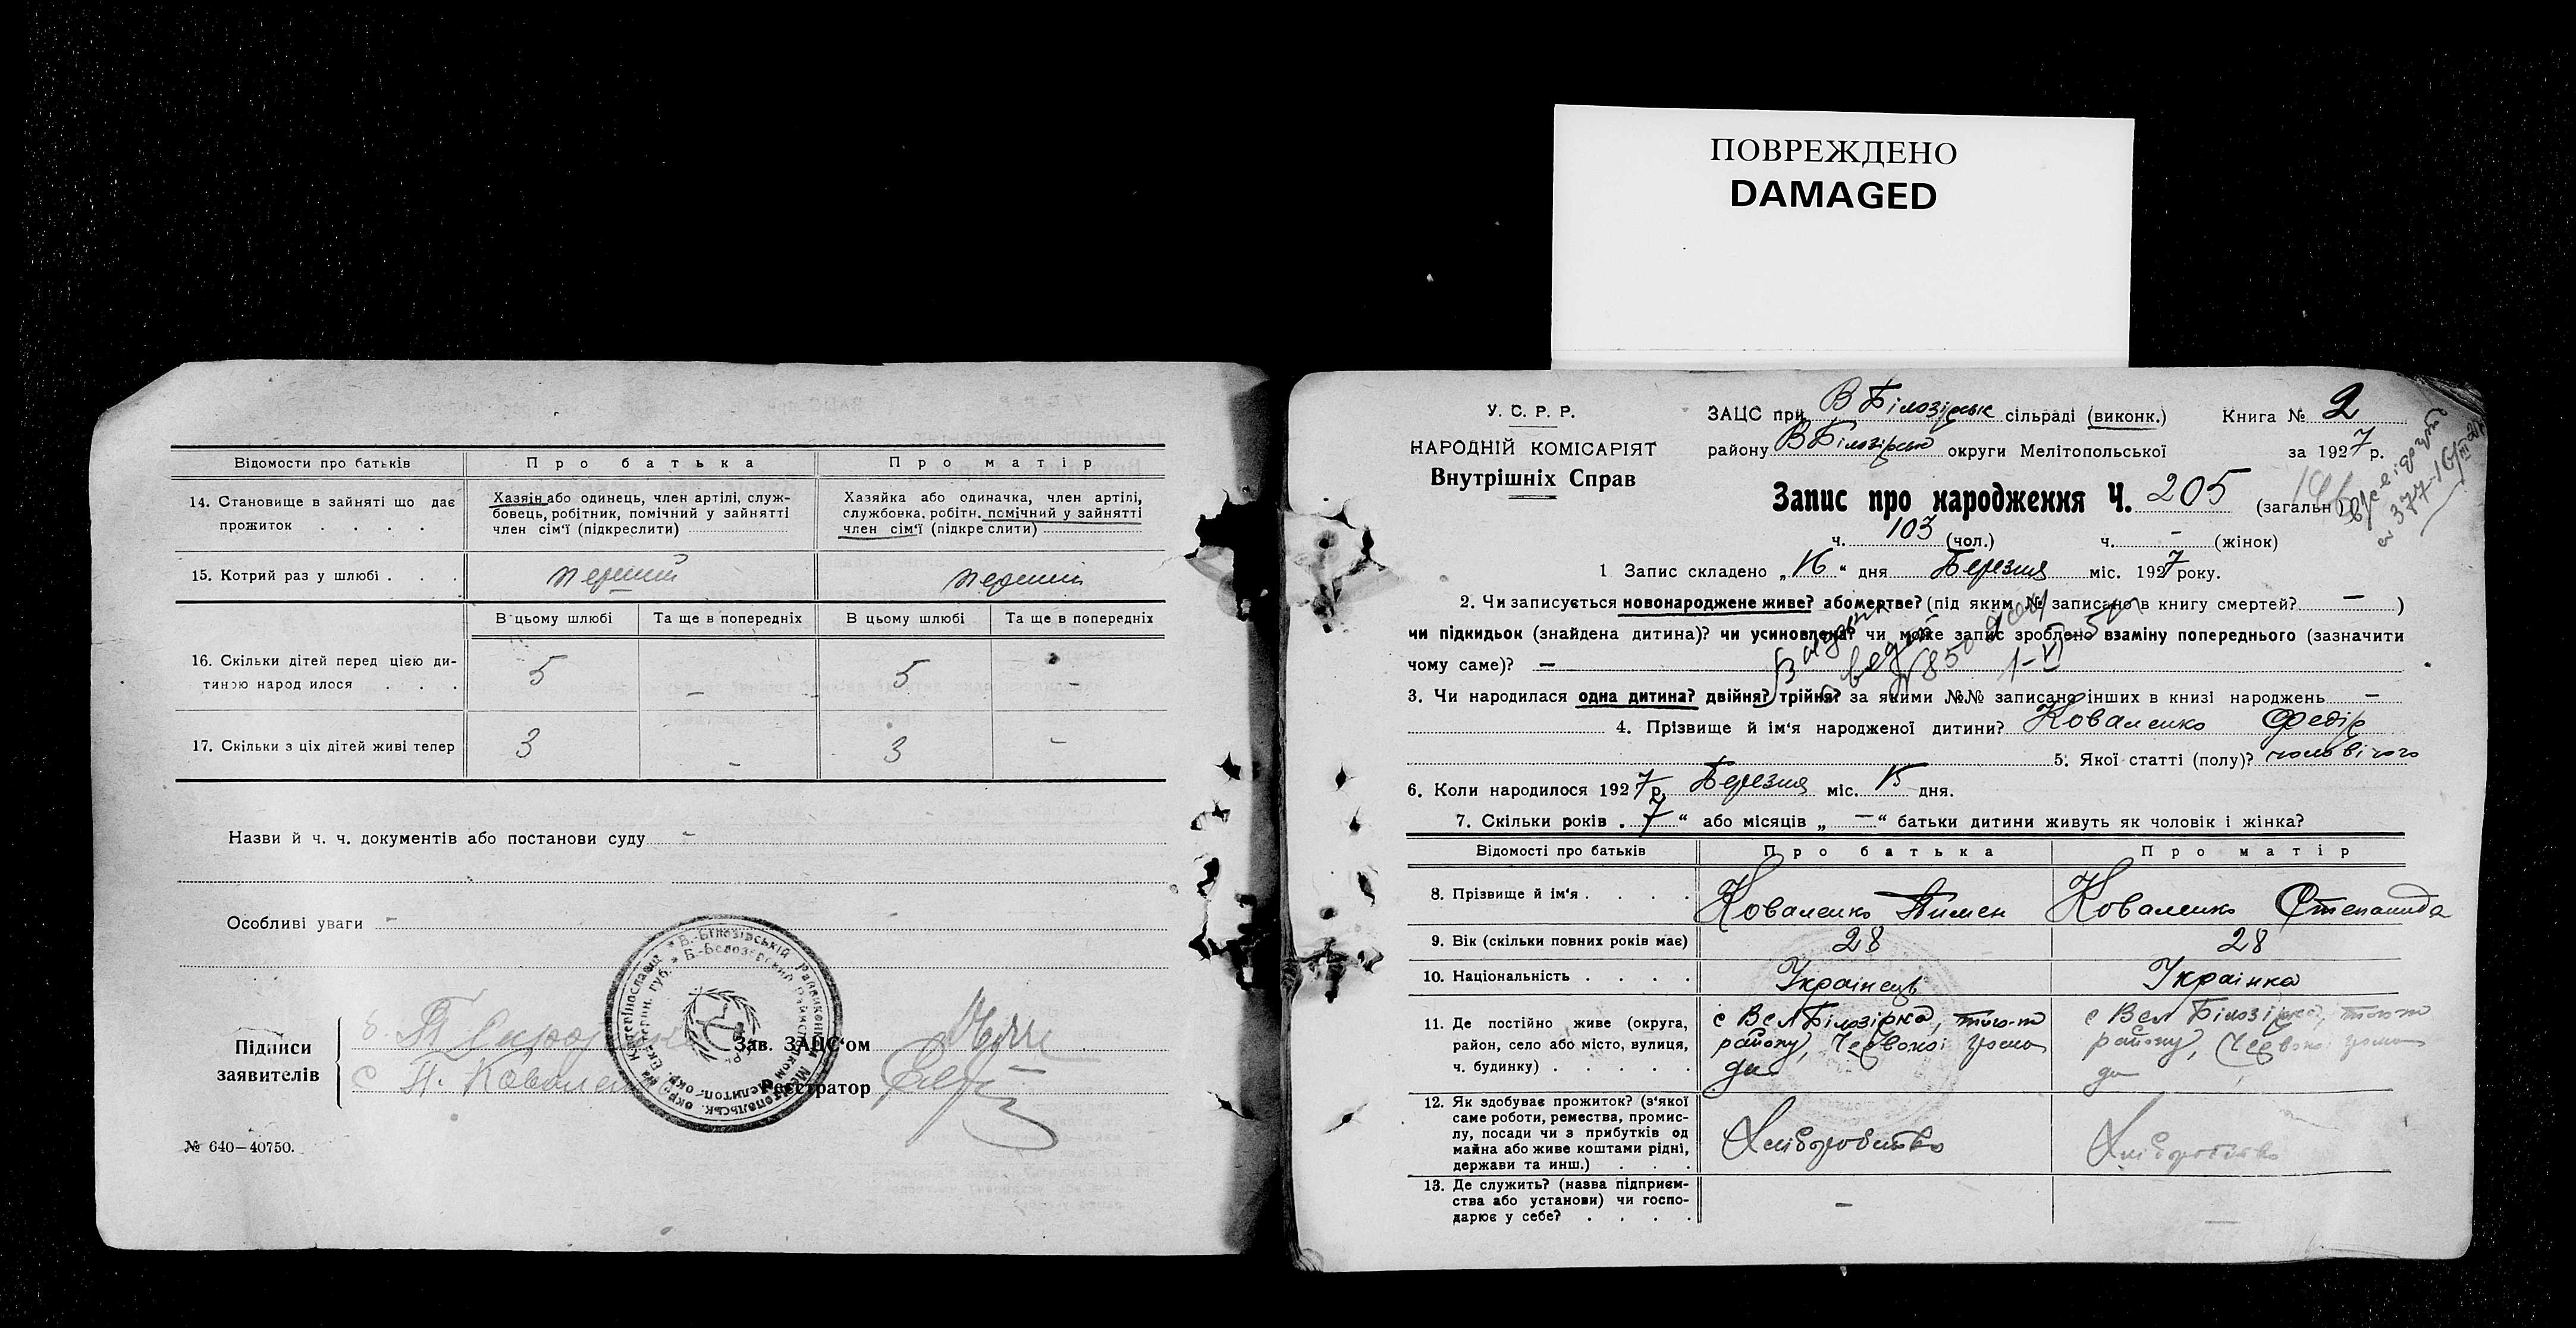 ПОВРЕЖДЕНО
DAMAGED
Відомости про батьків
Про батька
Про матір
14. Становище в зайняті що дає прожиток . . . .
Хазяін або одинець, член артілі, служ-
бовець, робітник, помічний у зайнятті
член сім'ї (підкреслити)
Хазяйка або одиначка, член артілі,
службовка, робітн. помічний у зайнятті
член сім'ї (підкреслити)
15. Котрий раз у шлюбі . . .
перший
перший
В цьому шлюбі
Та ще в попередніх
В цьому шлюбі
Та ще в попередніх
16. Скільки дітей перед цією ди-
тиною народилося . . .
5
–
5
–
17. Скільки з ціх дітей живі тепер
3
–
3
–
Назви й ч. ч. документів або постанови суду –
Особливі уваги –
Підписи
заявителів
Зав. ЗАЦС'ом
П. Коваленко
Реєстратор
№ 640–40750.
У. С. Р. Р.
НАРОДНІЙ КОМІСАРІЯТ
Внутрішніх Справ
ЗАЦС при В Білозірськ сільраді (виконк.) Книга № 2
району В Білозірськ округи Мелітопольської за 1927 р.
Запис про народження Ч. 205 (загальн.)
ч. 103 (чол.) ч. – (жінок)
1 Запис складено „ “ дня Березня міс. 1927 року.
2. Чи записується новонароджене живе? або мертве? (під яким № записано в книгу смертей? — )
чи підкидьок (знайдена дитина)? чи усиновлена? чи може запис зроблено взаміну попереднього (зазначити
чому саме)? —
3. Чи народилася одна дитина? двійня? трійня? за якими №№ записано інших в книзі народжень —
4. Прізвище й ім'я народженої дитини? Коваленко Федір
5. Якої статті (полу)? чоловічого
6. Коли народилося 1927 р. Березня міс. дня.
7. Скільки років „ 7 “ або місяців „ — “ батьки дитини живуть як чоловік і жінка?
Відомості про батьків
Про батька
Про матір
8. Прізвище й ім'я . . . .
Коваленко Пимен
Коваленко Степанида
9. Вік (скільки повних років має)
28
28
10. Національність . . . .
Українець
Українка
11. Де постійно живе (округа,
район, село або місто, вулиця,
ч. будинку) . . . . .
с Вел Білозірка, того-ж
району, Червоної грома
да
с Вел Білозірка, того-ж
району, Червоної грома
да
12. Як здобуває прожиток? (з'якої
саме роботи, ремества, промис-
лу, посади чи з прибутків од
майна або живе коштами рідні,
держави та инш.) . . .
Хліборобство
Хліборобство
13. Де служить? (назва підприєм-
ства або установи) чи госпо-
дарює у себе? . . . .
–
–